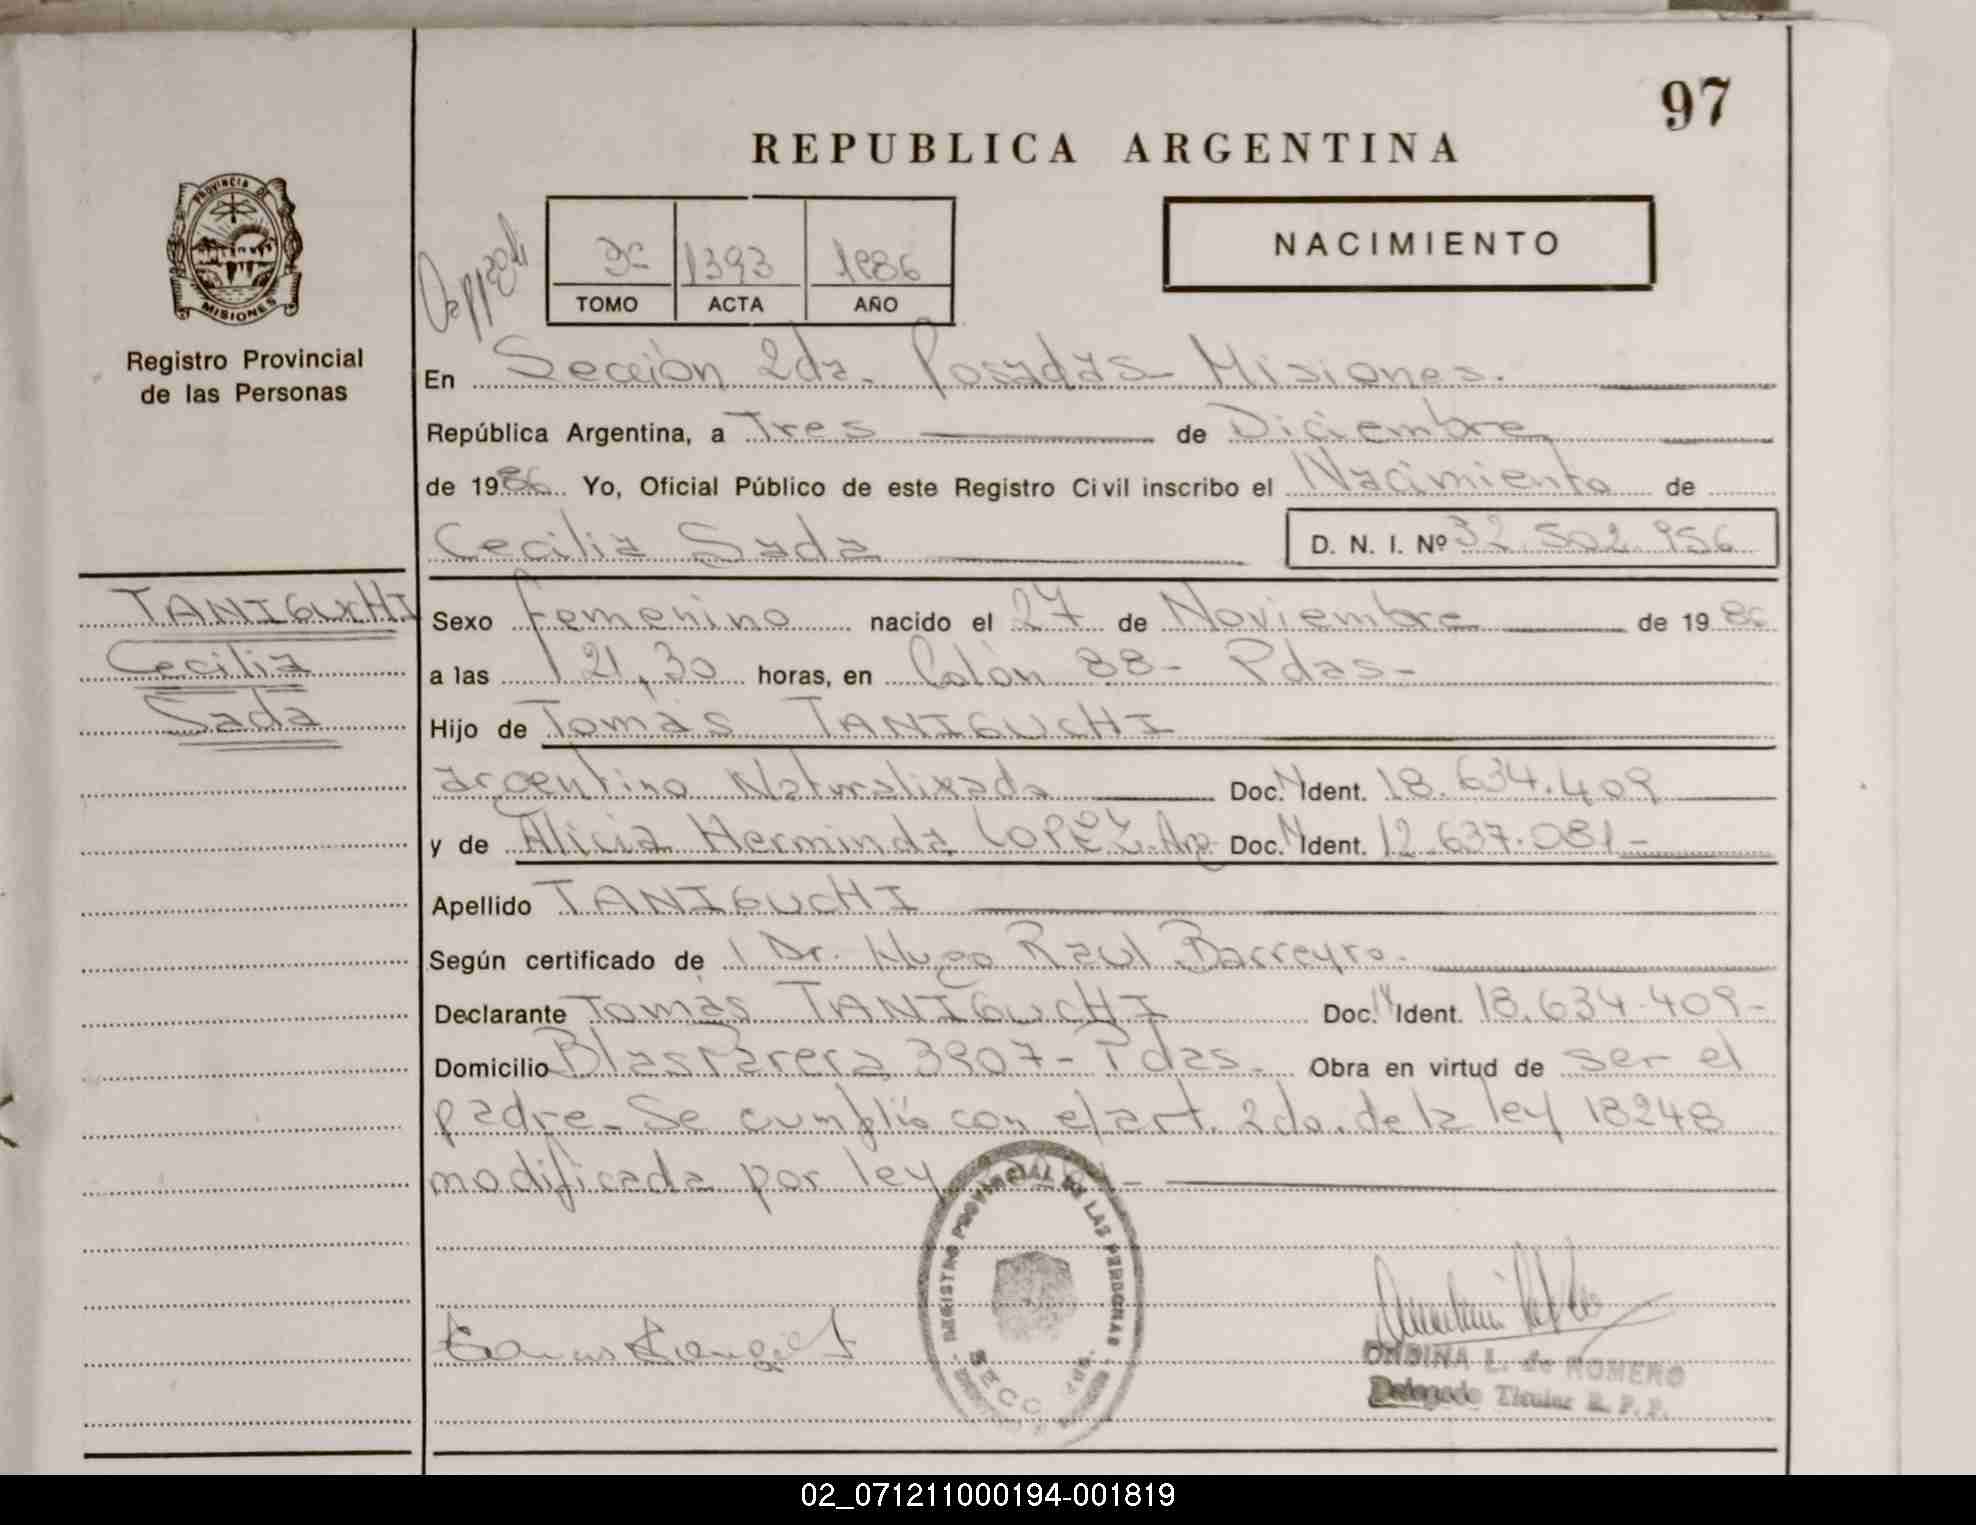 97
REPUBLICA ARGENTINA
PROVINCIA DE
MISIONES
Registro Provincial
de las Personas
NACIMIENTO
1393 1986
TOMO ACTA AÑO
En Sección 2da. Posadas Misiones.
República Argentina, a Tres de Diciembre
de 1986 Yo, Oficial Público de este Registro Civil inscribo el Nacimiento de
Cecilia Sada D. N. I. Nº 32.502.956
TANIGUCHI
Cecilia
Sada
Sexo femenino nacido el 27 de Noviembre de 19 86
a las 21,30 horas, en Colón 88- Pdas-
Hijo de Tomás TANIGUCHI
argentino Naturalizado Doc. Ident. 18.634.409
y de Alicia Herminda LOPEZ. Arg Doc. Ident. 12.637.081-
Apellido TANIGUCHI
Según certificado de Dr. Hugo Raul Barreyro.
Declarante Tomás TANIGUCHI Doc. Ident. 18.634.409-
Domicilio Blas Parera 3907- Pdas. Obra en virtud de ser el
padre- Se cumplió con el art. 2do. de la ley 18248
modificada por ley
REGISTRO PROVINCIAL DE LAS PERSONAS
SECC
ONDINA L. de ROMERO
Delegado Titular R. P. P.
02_071211000194-001819